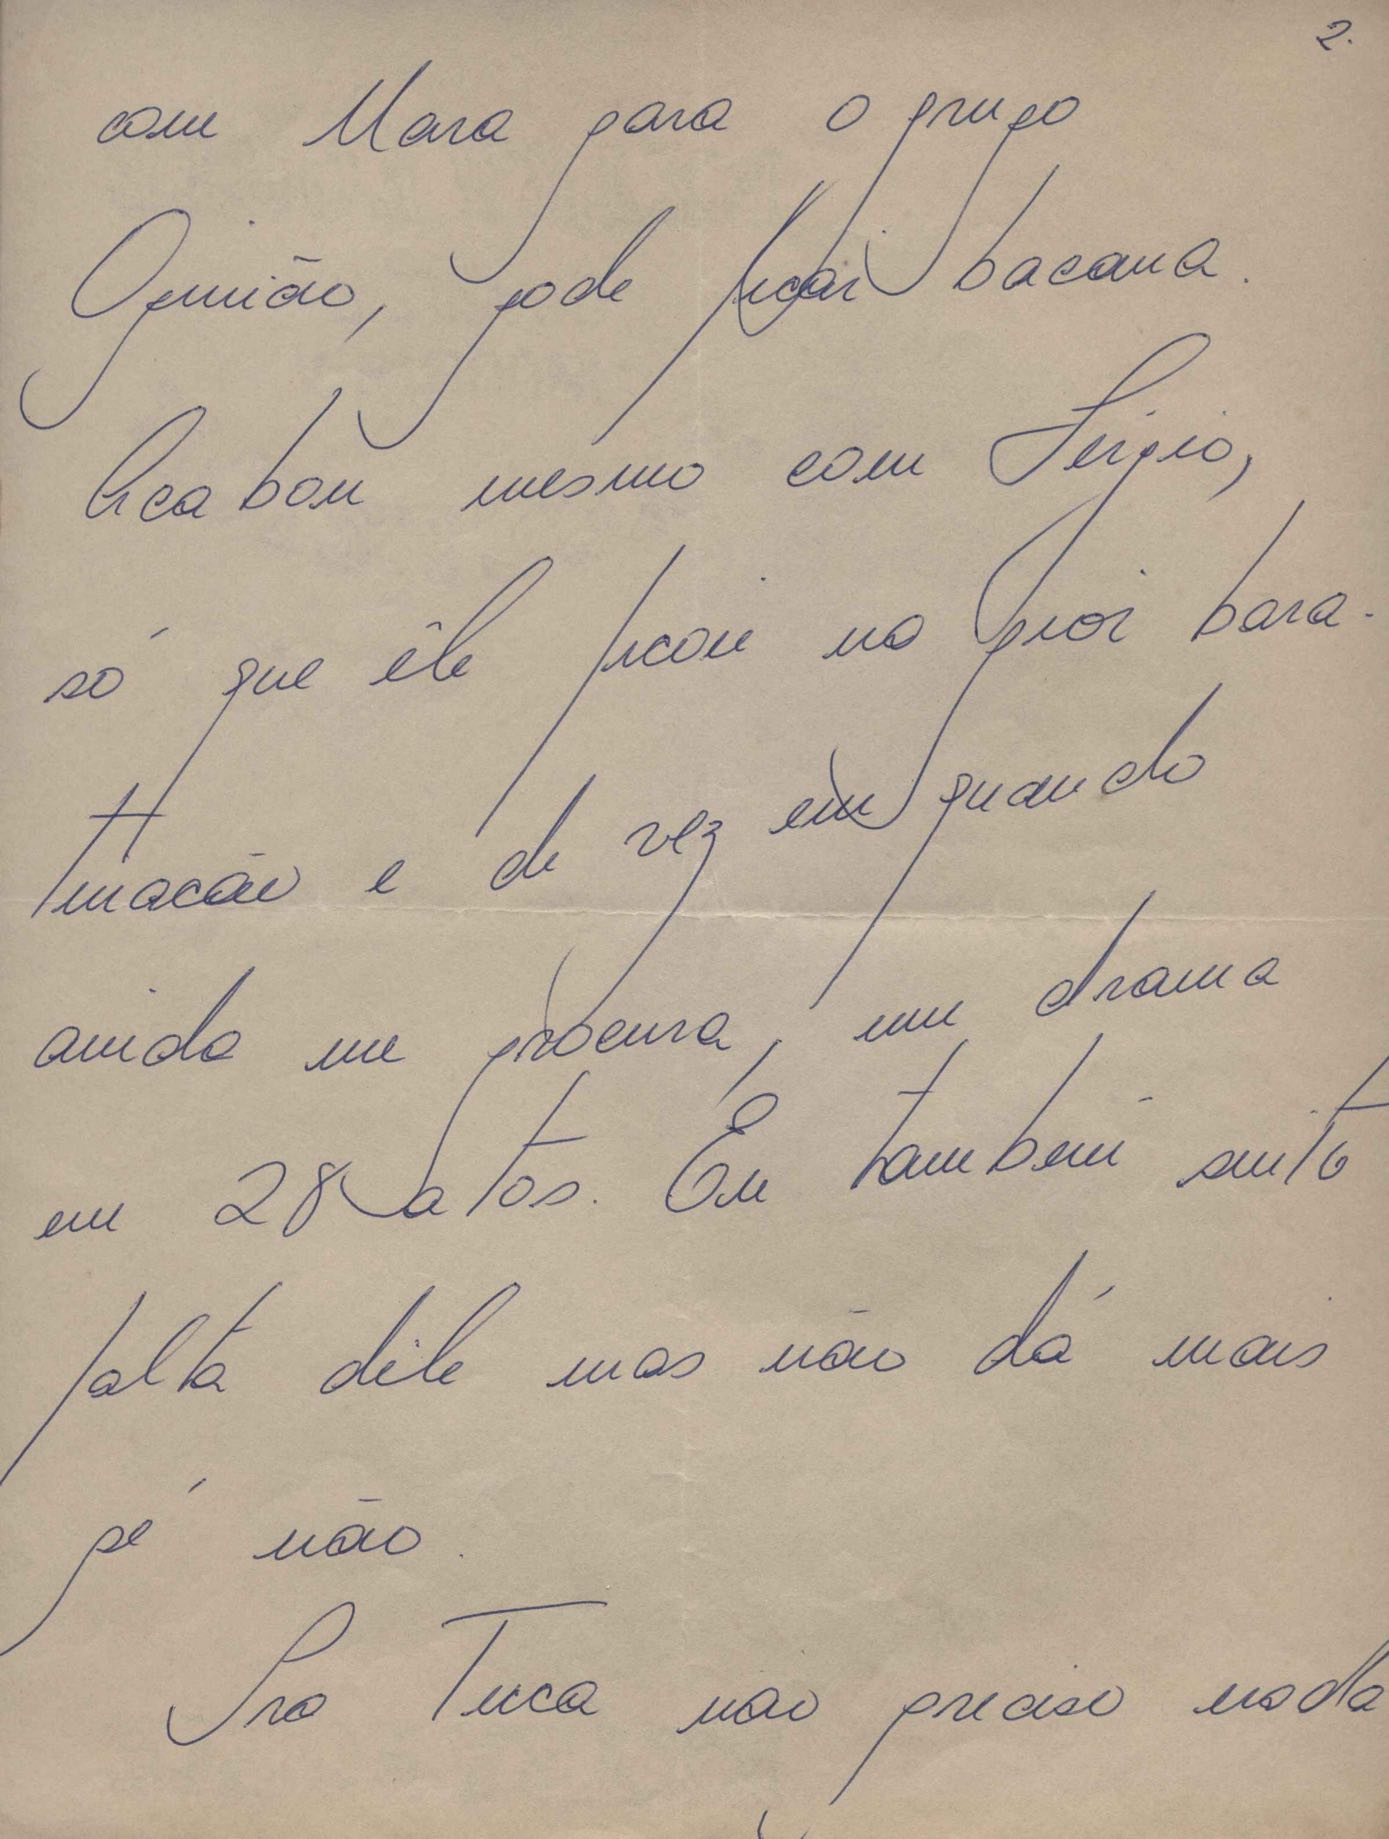 2.
com Mara para o grupo
Opinião, pode ficar bacana.
Acabou mesmo com Sérgio,
só que êle ficou na pior bara-
tinação e de vez em quando
ainda me procura, um drama
em 28 atos. Eu também sinto
falta dêle mas não dá mais
pé não.
Pra Tuca não preciso nada